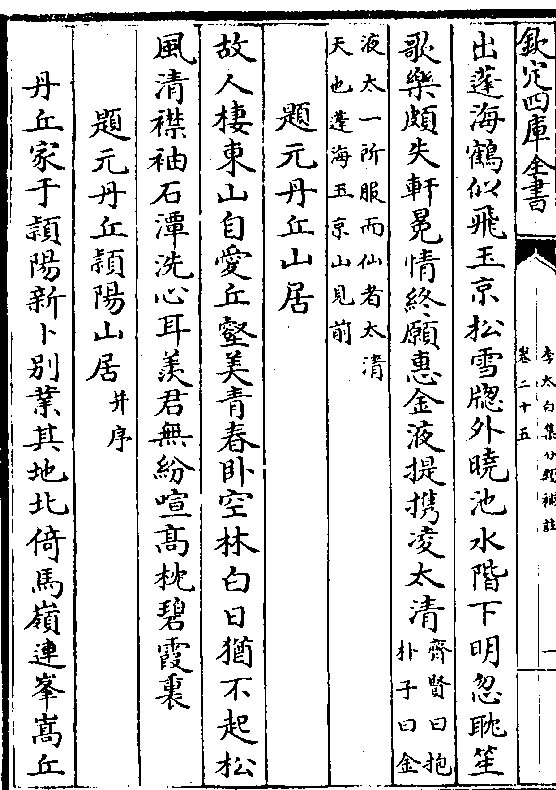 欽定四庫全書
李太白集分類補註
卷二十五
一
出蓬海鶴似飛玉京松雪牕外曉池水階下明忽耽笙
歌樂頗失軒冕情終願惠金液提攜凌太清齊賢曰抱
朴子曰金
液太一所服而仙者太清
天也蓬海玉京山見前
題元丹丘山居
故人棲東山自愛丘壑美青春卧空林白日猶不起松
風清襟袖石潭洗心耳羨君無紛喧高枕碧霞裏
題元丹丘潁陽山居并序
丹丘家于潁陽新卜别業其地北倚馬嶺連峯嵩丘